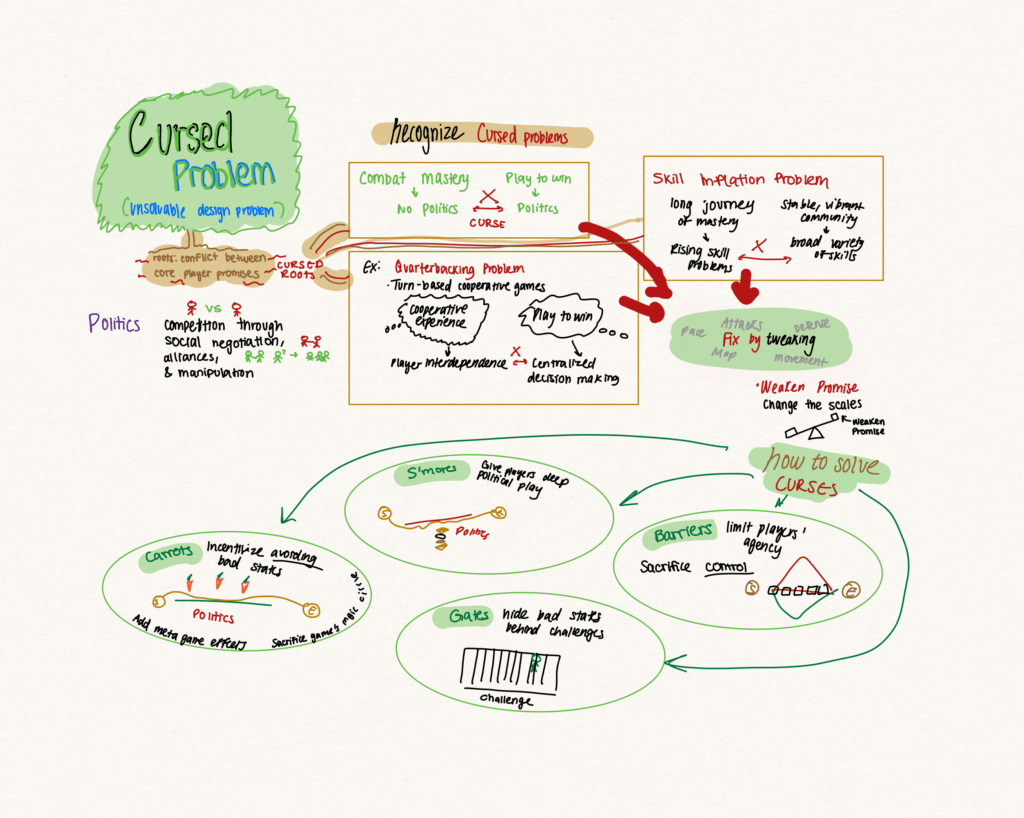 Cursed
Problem
(unsolvable design problem)
roots: conflict between
core player promises
CURSED
ROOTS
Politics
VS
competition through
social negotiation,
alliances,
& manipulation
Recognize Cursed problems
Combat mastery
Play to win
No Politics
Politics
CURSE
Ex: Quarterbacking Problem
· Turn-based cooperative games
cooperative
experience
Play to win
Player interdependence
Centralized
decision making
Skill Inflation Problem
long journey
of mastery
Stable, vibrant
community
Rising skill
problems
broad variety
of skills
Pace
Attacks
Defense
Fix by tweaking
Map
movement
· Weaken Promise
Change the scales
Weaken
Promise
how to solve
CURSES
S'mores
Give players deep
political play
S
E
Politics
Carrots
Incentivize avoiding
bad states
S
E
Politics
Add meta game effects
Sacrifice game's magic circle
Barriers
limit players'
agency
Sacrifice control
S
E
Gates
hide bad states
behind challenges
challenge